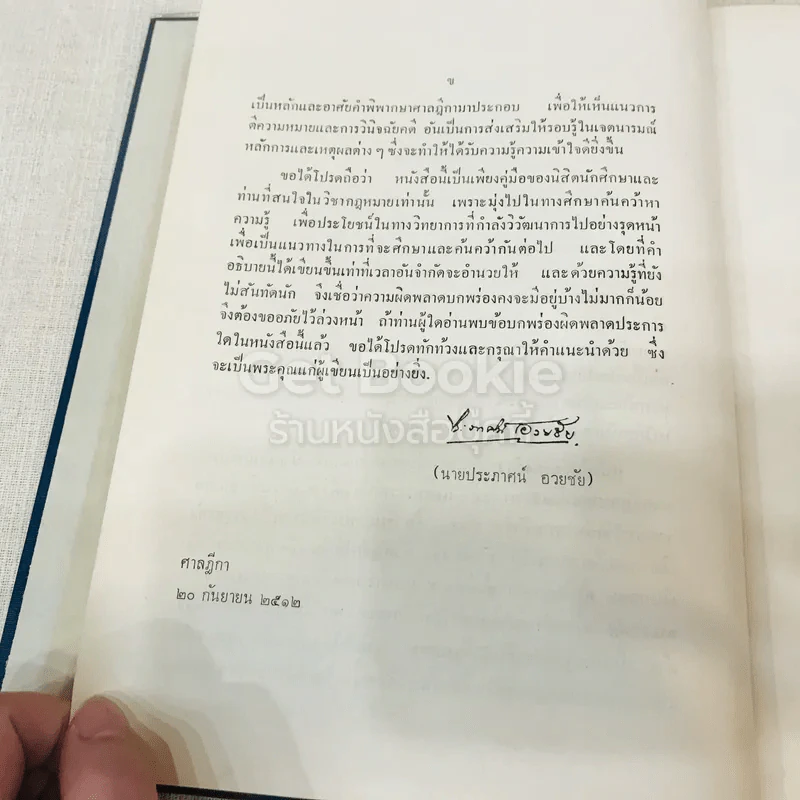 ข
เป็นหลักและอาศัยคำพิพากษาศาลฎีกามาประกอบ เพื่อให้เห็นแนวการ
ตีความหมายและการวินิจฉัยคดี อันเป็นการส่งเสริมให้รอบรู้ในเจตนารมณ์
หลักการและเหตุผลต่าง ๆ ซึ่งจะทำให้ได้รับความรู้ความเข้าใจดียิ่งขึ้น
ขอได้โปรดถือว่า หนังสือนี้เป็นเพียงคู่มือของนิสิตนักศึกษาและ
ท่านที่สนใจในวิชากฎหมายเท่านั้น เพราะมุ่งไปในทางศึกษาค้นคว้าหา
ความรู้ เพื่อประโยชน์ในทางวิทยาการที่กำลังวิวัฒนาการไปอย่างรุดหน้า
เพื่อเป็นแนวทางในการที่จะศึกษาและค้นคว้ากันต่อไป และโดยที่คำ
อธิบายนี้ได้เขียนขึ้นเท่าที่เวลาอันจำกัดจะอำนวยให้ และด้วยความรู้ที่ยัง
ไม่สันทัดนัก จึงเชื่อว่าความผิดพลาดบกพร่องคงจะมีอยู่บ้างไม่มากก็น้อย
จึงต้องขออภัยไว้ล่วงหน้า ถ้าท่านผู้ใดอ่านพบข้อบกพร่องผิดพลาดประการ
ใดในหนังสือนี้แล้ว ขอได้โปรดทักท้วงและกรุณาให้คำแนะนำด้วย ซึ่ง
จะเป็นพระคุณแก่ผู้เขียนเป็นอย่างยิ่ง.
Get Bookie
ร้านหนังสือบุ๊คกี้
(นายประภาศน์ อวยชัย)
ศาลฎีกา
๒๐ กันยายน ๒๕๑๒